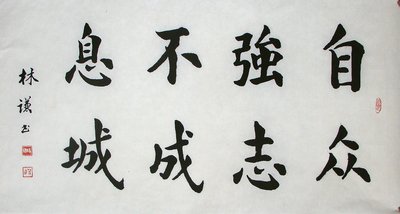 自众
強志
不成
息城
林谦书